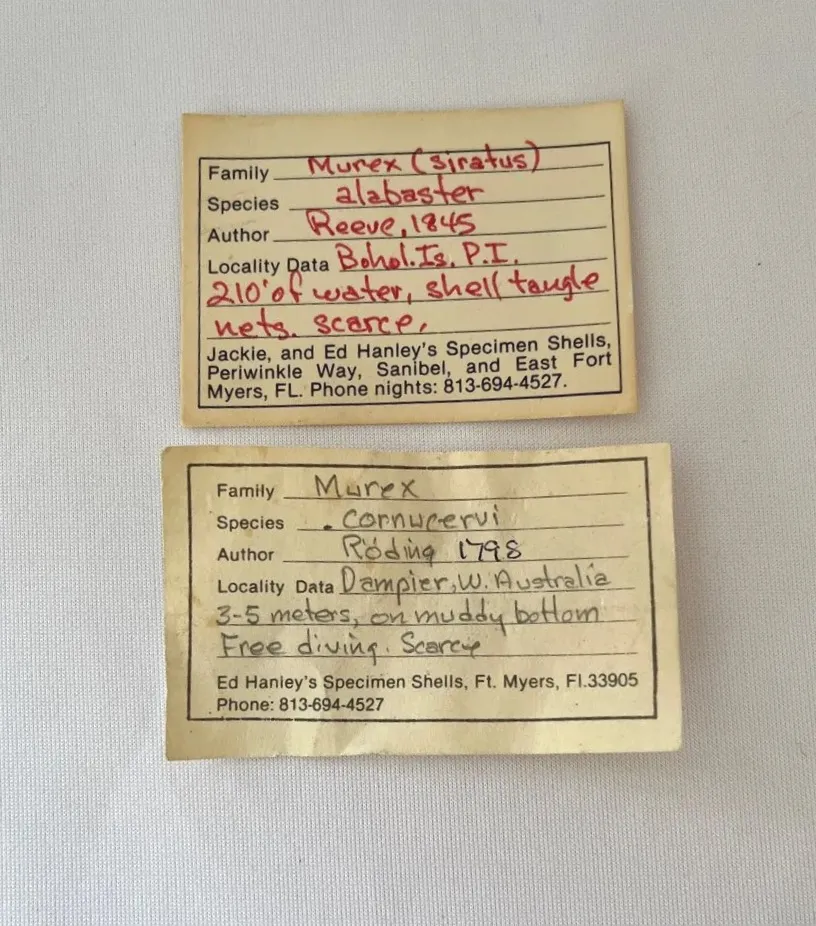 Family Murex (siratus)
Species alabaster
Author Reeve, 1845
Locality Data Bohol. Is. P.I.
210' of water, shell tangle
nets. scarce.
Jackie, and Ed Hanley's Specimen Shells,
Periwinkle Way, Sanibel, and East Fort
Myers, FL. Phone nights: 813-694-4527.
Family Murex
Species . Cornucervi
Author Röding 1798
Locality Data Dampier, W. Australia
3-5 meters, on muddy bottom
Free diving. Scarce
Ed Hanley's Specimen Shells, Ft. Myers, Fl.33905
Phone: 813-694-4527